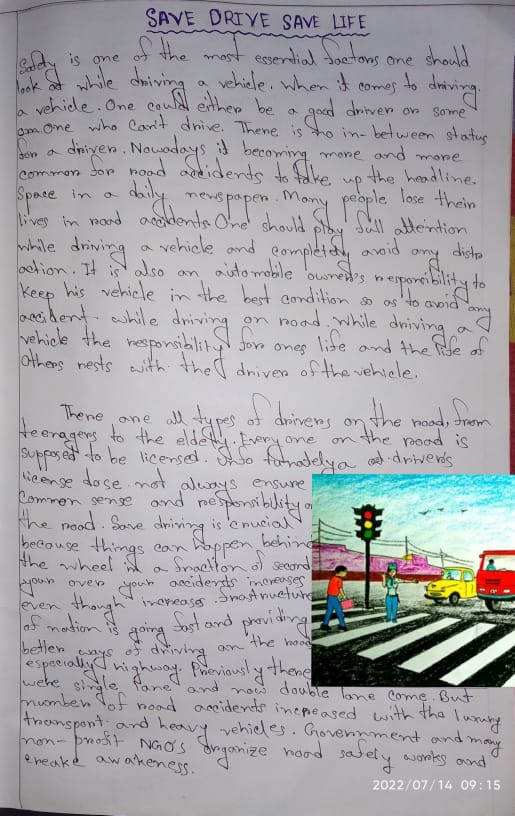 SAVE DRIVE SAVE LIFE
Safety is one of the most essential factors one should
look at while driving a vehicle. When it comes to driving.
a vehicle. One could either be a good driver or some
one who can't drive. There is no in-between status
for a driver. Nowadays it becoming more and more
common for road accidents to take up the headline.
Space in a daily newspaper. Many people lose their
lives in road accidents. One should play full attention
while driving a vehicle and completely avoid any distr
action. It is also an automobile owner's responsibility to
keep his vehicle in the best condition so as to avoid any
accident. while driving on road. While driving a
vehicle the responsibility for ones life and the life of
Others rests with the driver of the vehicle.
There are all types of drivers on the road, from
teenagers to the elderly. Every one on the road is
supposed to be licensed. a driver's
license dose not always ensure
Common sense and responsibility
the road. Save driving is crucial
because things can happen behind
the wheel in a fraction of second
your over your accidents increases
even though increases
of nation is going fast and providing
better ways of driving on the road
especially highway. Previously there
were single lane and now double lane come. But
number of road accidents increased with the luxury
transport and heavy vehicles. Government and many
non-profit NGO's Organize road safety works and
creake awakeness.
2022/07/14 09:15